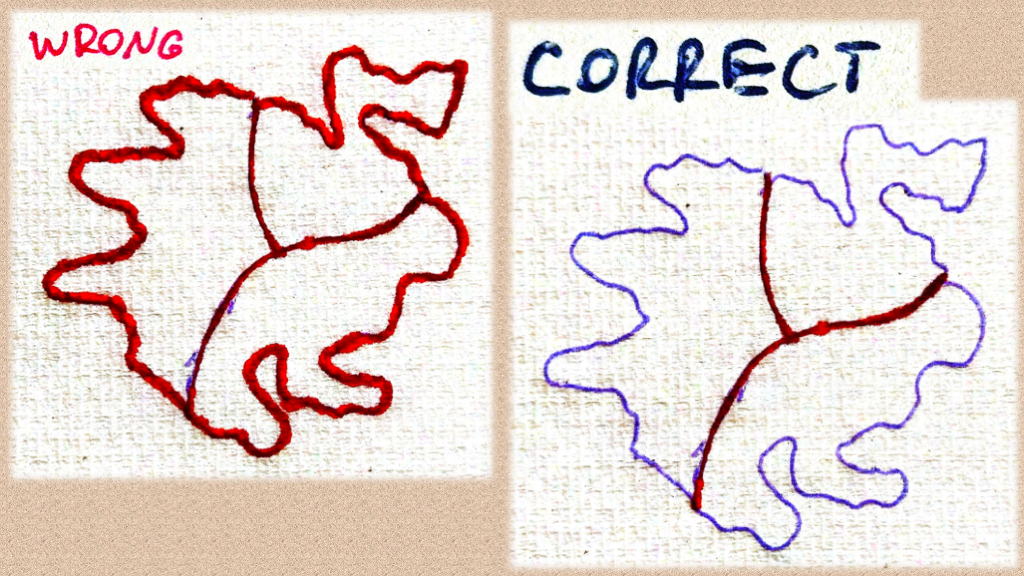 WRONG
CORRECT